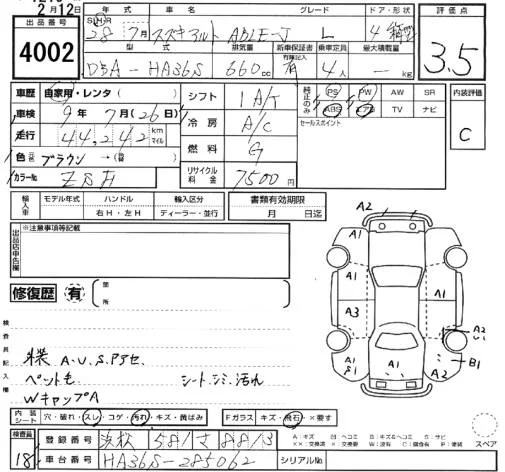 2月12日
出品番号
4002
S H R 年式 車名 グレード ドア・形状 評価点
28年 7月 スズキアルト L 4
3.5
型式 排気量 新車保証書 有限記入 乗車定員 最大積載量
DBA-HA36S 660cc 有 4人 - kg
車歴 自家用・レンタ( )
車検 9年 7月(26日)
走行 44,242 km マイル
色 元色 ブラウン →(替 )
カラーNo. ZSH
シフト IAT
冷房 A/C
燃料 G
リサイクル料金 7500円
純正のみ PS PW AW SR
ABS エアB TV ナビ
セールスポイント
内装評価
C
輸入車 モデル年式 ハンドル 輸入区分
右H・左H ディーラー・並行
書類有効期限
月 日迄
出品店申告欄 ※注意事項等記載
修復歴 有 箇所
検査員記入欄
外装 A.U.S.Pアセ
ペット毛 シートシミ汚れ
WキャップA
内装シート 穴・破れ・スレ・コゲ・汚れ・キズ・黄ばみ
Fガラス キズ・飛石・×要す
検査員
18
登録番号 浜松 581 さ 8813
車台番号 HA36S-285062 シリアルNo.
A2
A1 A1
A1
A3 A1
A2
A1 A1 B1
A2
A:キズ U:凹ミ B:キズ&凹ミ S:サビ
XX:交換済 X:要交換 W:波有 C:腐食有 P:塗装
スペア